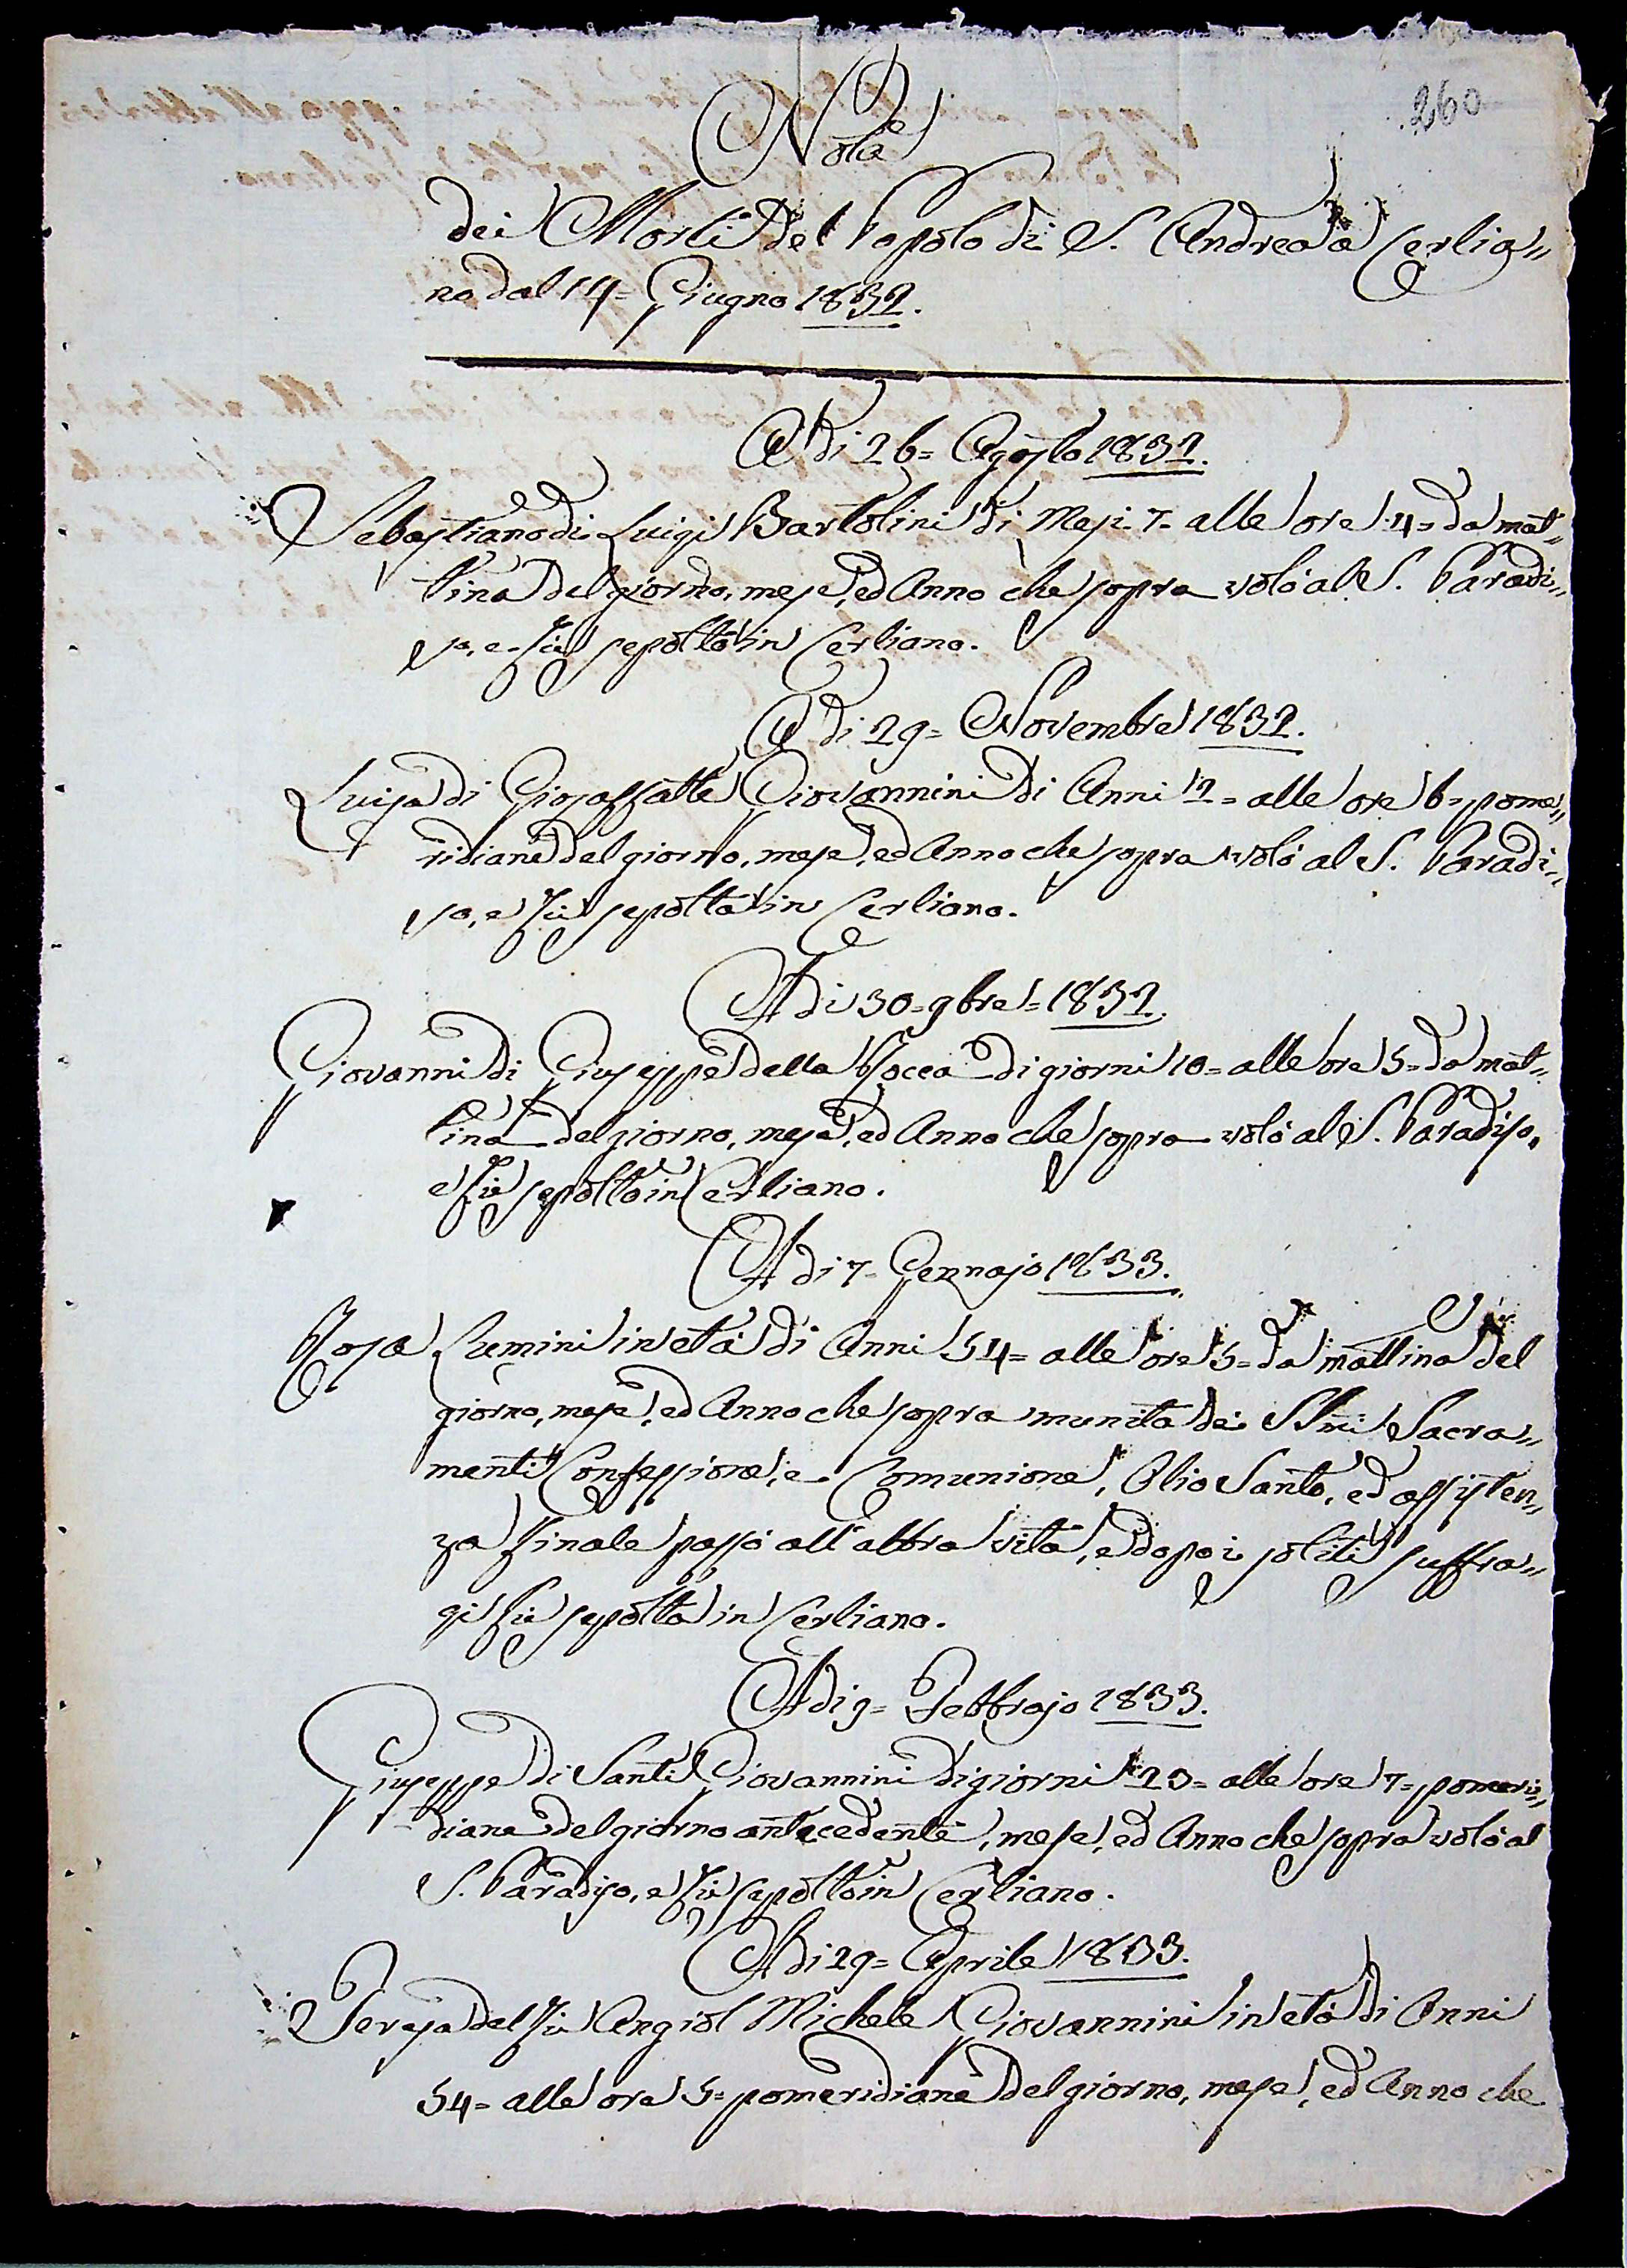 260
Nota
dei Morti del Popolo di S. Andrea a Cerlia=
no dal 14= Giugno 1832.
Adi 26= Agosto 1832.
Sebastiano di Luigi Bartolini di Mesi 7= alle ore 4= da mat=
tina del giorno, mese, ed Anno che sopra volò al S. Paradi=
so, e fù sepolto in Cerliano.
Adi 29= Novembre 1832.
Luisa di Giosaffatte Giovannini di Anni 2= alle ore 6= pome=
ridiane del giorno, mese, ed Anno che sopra volò al S. Paradi=
so, e fù sepolta in Cerliano.
Adi 30= 9bre= 1832.
Giovanni di Giuseppe della Rocca di giorni 10= alle ore 5= da mat=
tina del giorno, mese, ed Anno che sopra volò al S. Paradiso,
e fù sepolto in Cerliano.
Adi 7= Gennajo 1833.
Rosa Lumini in età di Anni 54= alle ore 5= da mattina del
giorno, mese, ed Anno che sopra munita dei SSmi Sacra=
menti Confessione, e Comunione, Olio Santo, ed assisten=
za finale passò all'altra vita, e dopo i soliti suffra=
gi fù sepolta in Cerliano.
Adi 9= Febbrajo 1833.
Giuseppe di Santi Giovannini di giorni 23= alle ore 7= pomeri=
diane del giorno antecedente, mese, ed Anno che sopra volò al
S. Paradiso, e fù sepolto in Cerliano.
Adi 29= Aprile 1833.
Teresa del fù Angiol Michele Giovannini in età di Anni
54= alle ore 5= pomeridiane del giorno, mese, ed Anno che